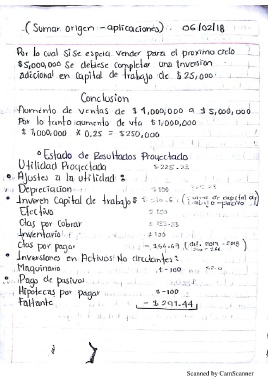 (Sumar origen - aplicaciones). 06/02/18
Por lo cual si se espera vender para el proximo ciclo
$5,000,000 se debiese completar una inversión
adicional en Capital de trabajo de $25,000.
Conclusion
Aumento de ventas de $4,000,000 a $5,000,000
Por lo tanto aumento de vta $1,000,000
$1,000,000 x 0.25 = $250,000
Estado de Resultados Proyectado
Utilidad Proyectada $225.23
• Ajustes a la utilidad:
Depreciacion $100
• Inver en Capital de trabajo $
Efectivo $100
Ctas por Cobrar
Inventario $100
Ctas por pagar -166.69
• Inversiones en Activos No circulantes:
Maquinaria $-100
• Pago de pasivo:
Hipotecas por pagar $-100
Faltante -$291.44
Scanned by CamScanner